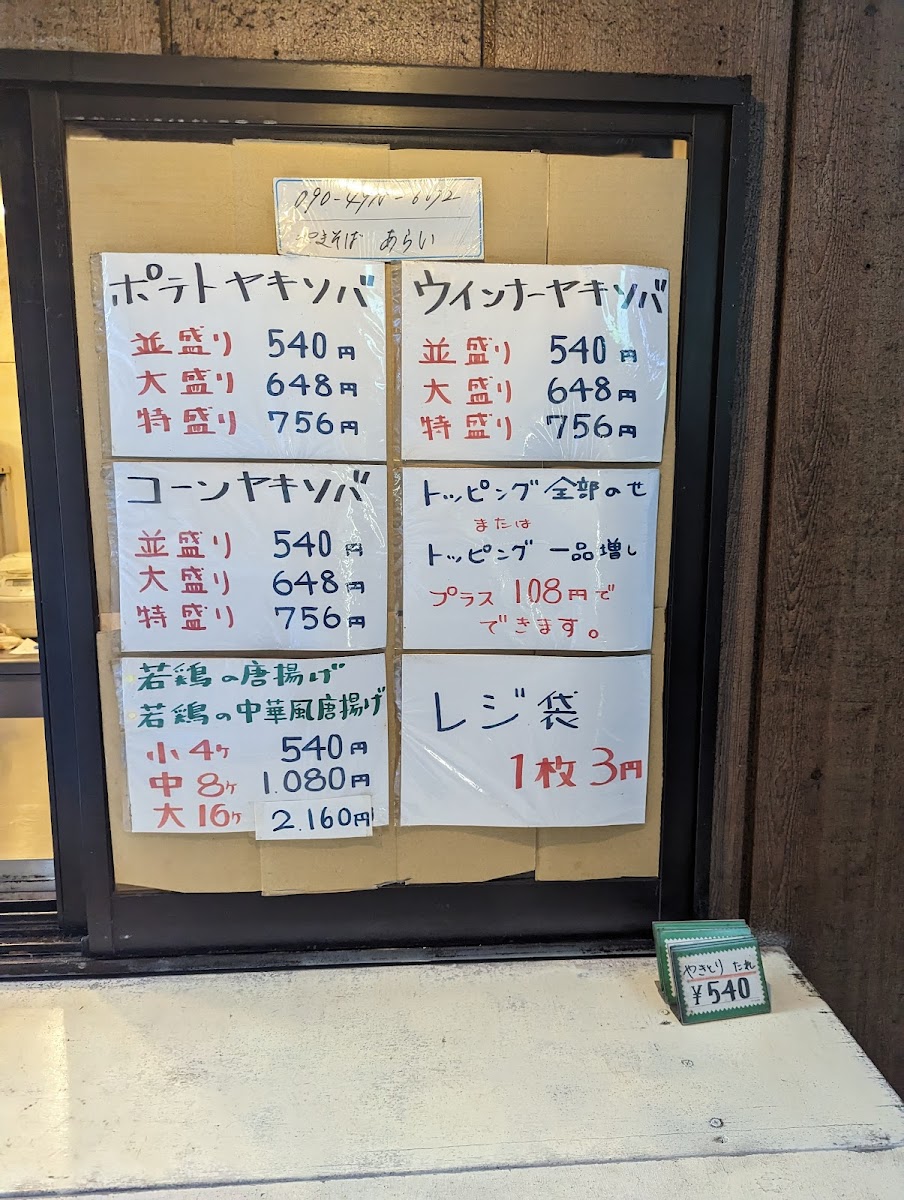 やきそば あらい
ポテトヤキソバ
並盛り 540円
大盛り 648円
特盛り 756円
ウインナーヤキソバ
並盛り 540円
大盛り 648円
特盛り 756円
コーンヤキソバ
並盛り 540円
大盛り 648円
特盛り 756円
トッピング全部のせ
または
トッピング一品増し
プラス108円で
できます。
若鶏の唐揚げ
若鶏の中華風唐揚げ
小4ケ 540円
中8ケ 1.080円
大16ケ 2.160円
レジ袋
1枚3円
やきとり たれ
¥540